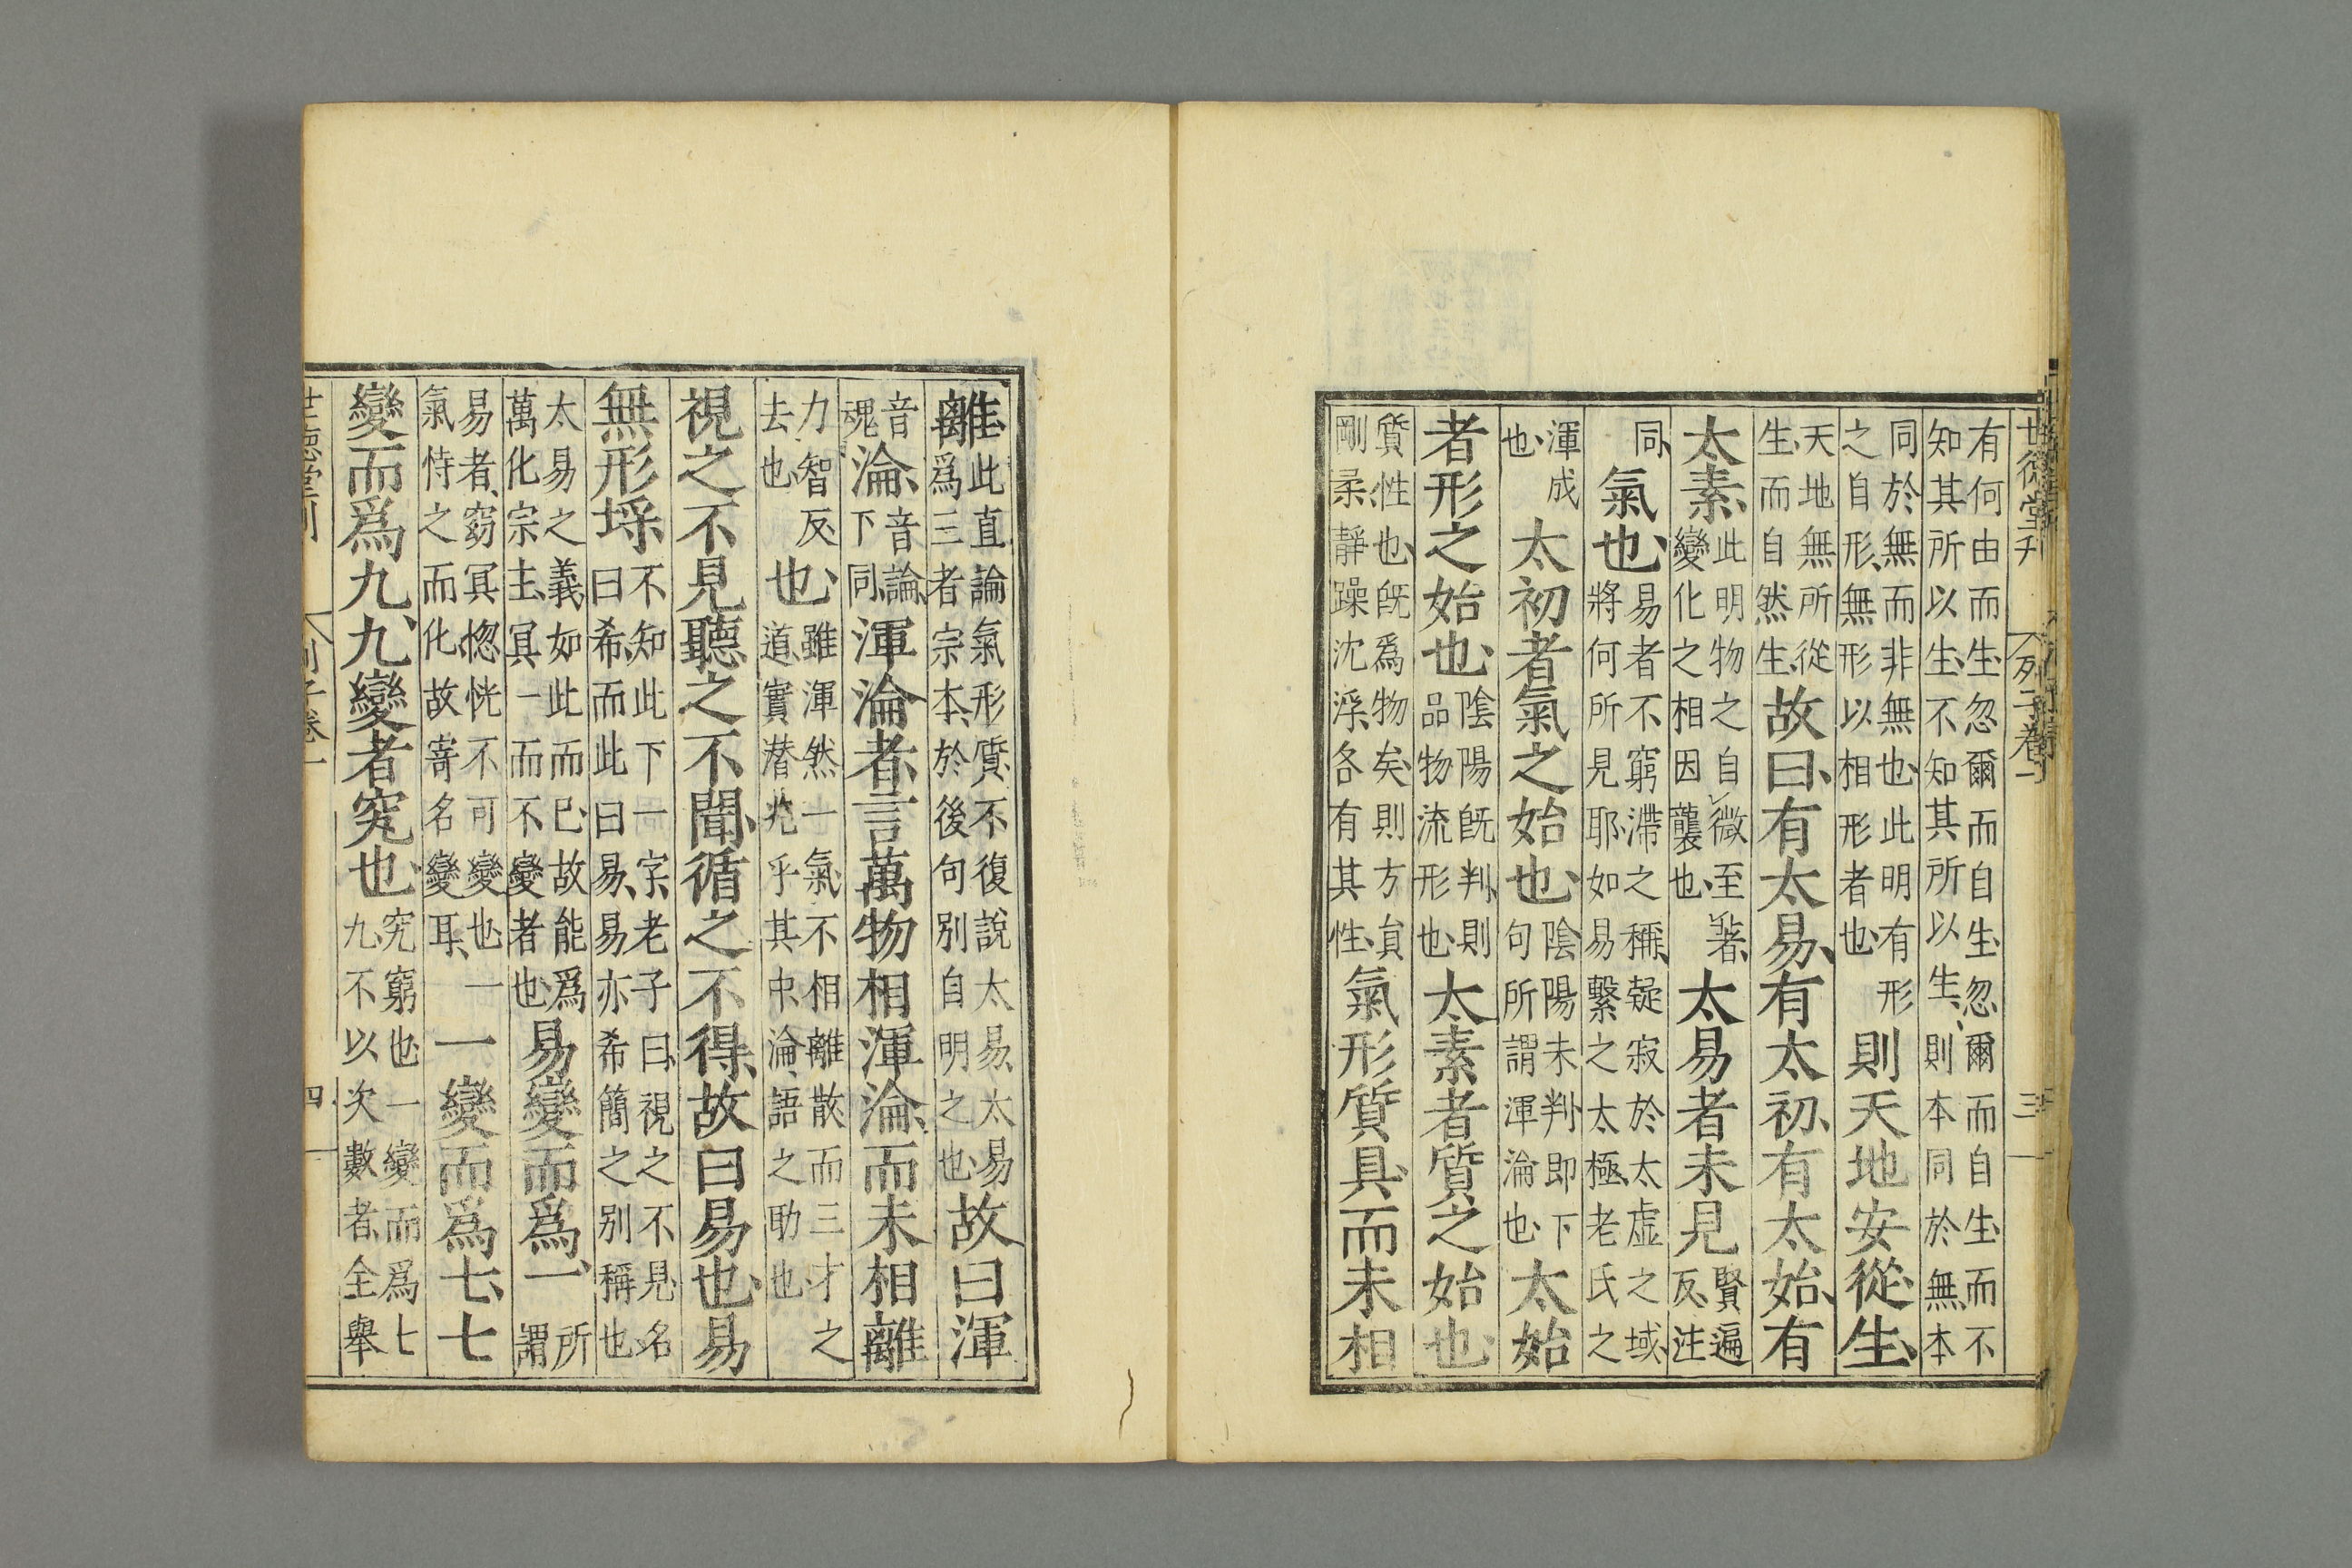 世德堂刊 列子卷一 三
有何由而生忽爾而自生忽爾而自生而不
知其所以生不知其所以生生則本同於無本
同於無而非無也此明有形
之自形無形以相形者也
則天地安從生
天地無所從
生而自然生
故曰有太易有太初有太始有
太素
此明物之自微至著
變化之相因襲也
太易者未見
賢遍
反注
同
氣也
易者不窮滯之稱凝寂於太虛之域
將何所見耶如易繫之太極老氏之
渾成
也
太初者氣之始也
陰陽未判即下
句所謂渾淪也
太始
者形之始也
陰陽既判則
品物流形也
太素者質之始也
質性也既爲物矣則方員
剛柔靜躁沈浮各有其性
氣形質具而未相
離
此直論氣形質不復說太易太易
爲三者宗本於後句別自明之也
故曰渾
音
魂
淪
音論
下同
渾淪者言萬物相渾淪而未相離
力智反
去也
也
雖渾然一氣不相離散而三才之
道實潛兆乎其中淪語之助也
視之不見聽之不聞循之不得故曰易也易
無形埒
不知此下一字老子曰視之不見名
曰希而此曰易易亦希簡之別稱也
太易之義如此而已故能爲
萬化宗主冥一而不變者也
易變而爲一
所
謂
易者窈冥惚恍不可變也一
氣恃之而化故寄名變耳
一變而爲七七
變而爲九九變者究也
究窮也一變而爲七
九不以次數者全舉
世德堂刊 列子卷一 四